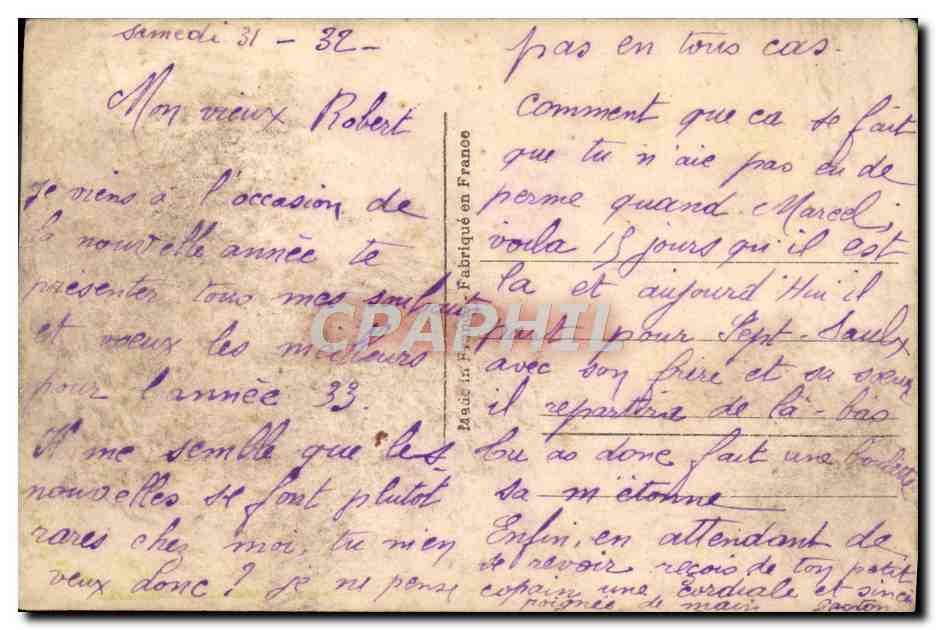 Samedi 31 - 32 -
Mon vieux Robert
Je viens à l'occasion de
la nouvelle année te
présenter tous mes souhaits
et voeux les meilleurs
pour l'année 33.
Il me semble que les
nouvelles se font plutôt
rares chez moi, tu m'en
veux donc ? je ne pense
pas en tous cas.
Comment que ca se fait
que tu n'aie pas eu de
perme quand Marcel,
voila 15 jours qu'il est
la et aujourd'Hui il
part pour Sept-Saulx
avec son frère et sa soeur
il repartira de là-bas
tu as donc fait une
sa m'étonne
Enfin, en attendant de
te revoir reçois de ton petit
copain une cordiale et sincè
poignée de main Gaston
Made in France - Fabriqué en France
CPAPHIL